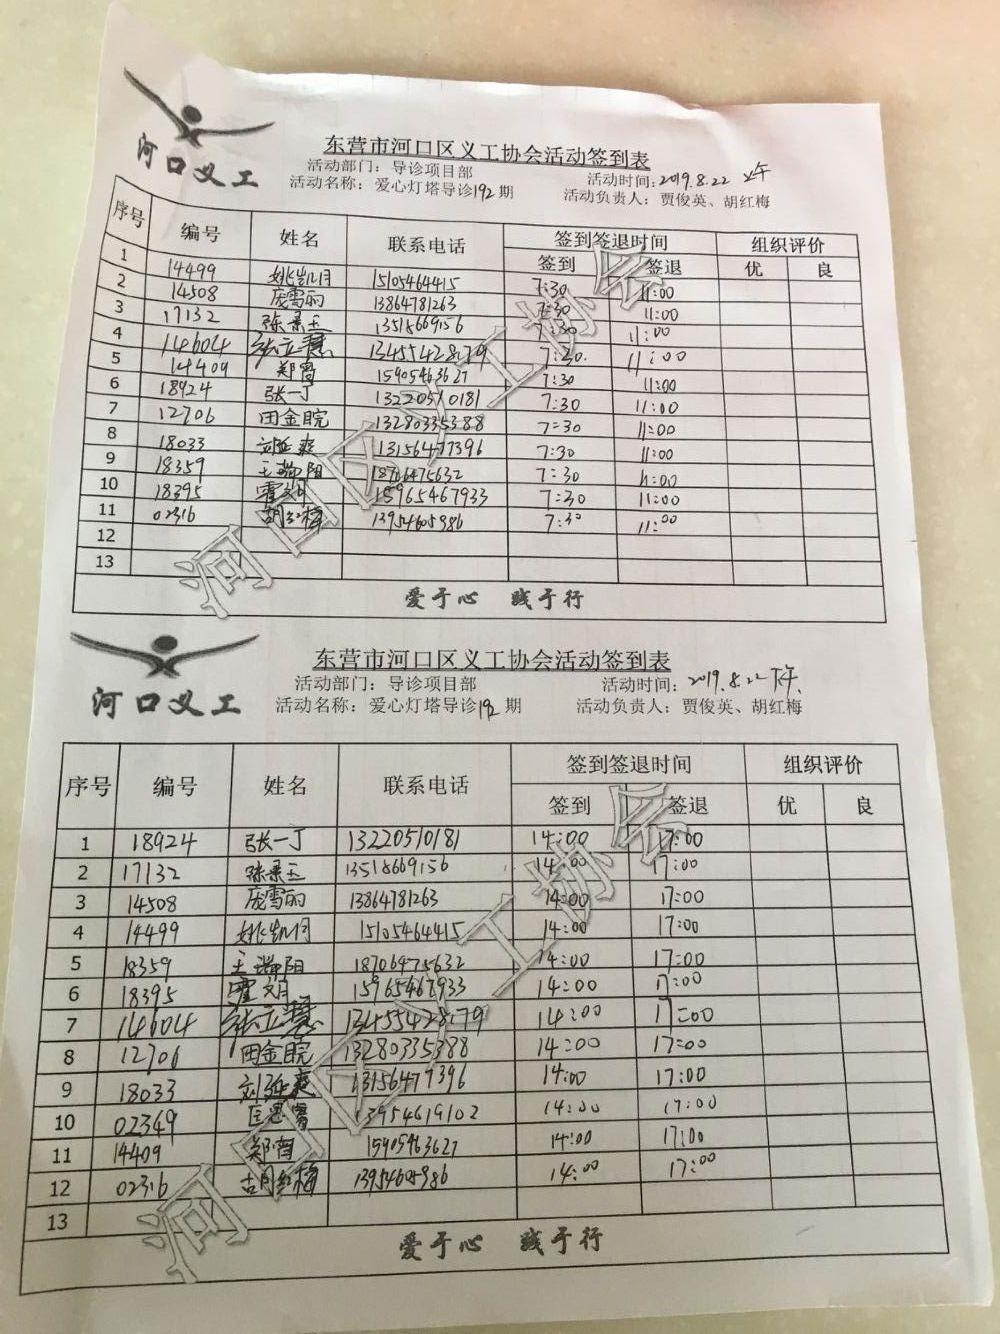 河口义工
东营市河口区义工协会活动签到表
活动部门：导诊项目部 活动时间：2019.8.22 上午
活动名称：爱心灯塔导诊192期 活动负责人：贾俊英、胡红梅
序号 编号 姓名 联系电话 签到签退时间 组织评价
签到 签退 优 良
1 14499 姚凯月 15105464415 7:30 11:00
2 14508 庞雪丽 13864781263 7:30 11:00
3 17132 张景玉 13518669156 7:30 11:00
4 14604 张立慧 13455428179 7:30 11:00
5 14409 郑霄 15905463627 7:30 11:00
6 18924 张一丁 13220510181 7:30 11:00
7 12706 田金皖 13280335388 7:30 11:00
8 18033 刘延爽 13156477396 7:30 11:00
9 18359 王瑞阳 18706475632 7:30 11:00
10 18395 霍明 15965467933 7:30 11:00
11 02316 胡红梅 13954605986 7:30 11:00
12
13
爱于心 践于行
河口区义工协会
河口义工
东营市河口区义工协会活动签到表
活动部门：导诊项目部 活动时间：2019.8.22 下午
活动名称：爱心灯塔导诊192期 活动负责人：贾俊英、胡红梅
序号 编号 姓名 联系电话 签到签退时间 组织评价
签到 签退 优 良
1 18924 张一丁 13220510181 14:00 17:00
2 17132 张景玉 13518669156 14:00 17:00
3 14508 庞雪丽 13864781263 14:00 17:00
4 14499 姚凯月 15105464415 14:00 17:00
5 18359 王瑞阳 18706475632 14:00 17:00
6 18395 霍明 15965467933 14:00 17:00
7 14604 张立慧 13455428179 14:00 17:00
8 12706 田金皖 13280335388 14:00 17:00
9 18033 刘延爽 13156477396 14:00 17:00
10 02349 13954619102 14:00 17:00
11 14409 郑霄 15905463627 14:00 17:00
12 02316 胡红梅 13954605986 14:00 17:00
13
爱于心 践于行
河口区义工协会